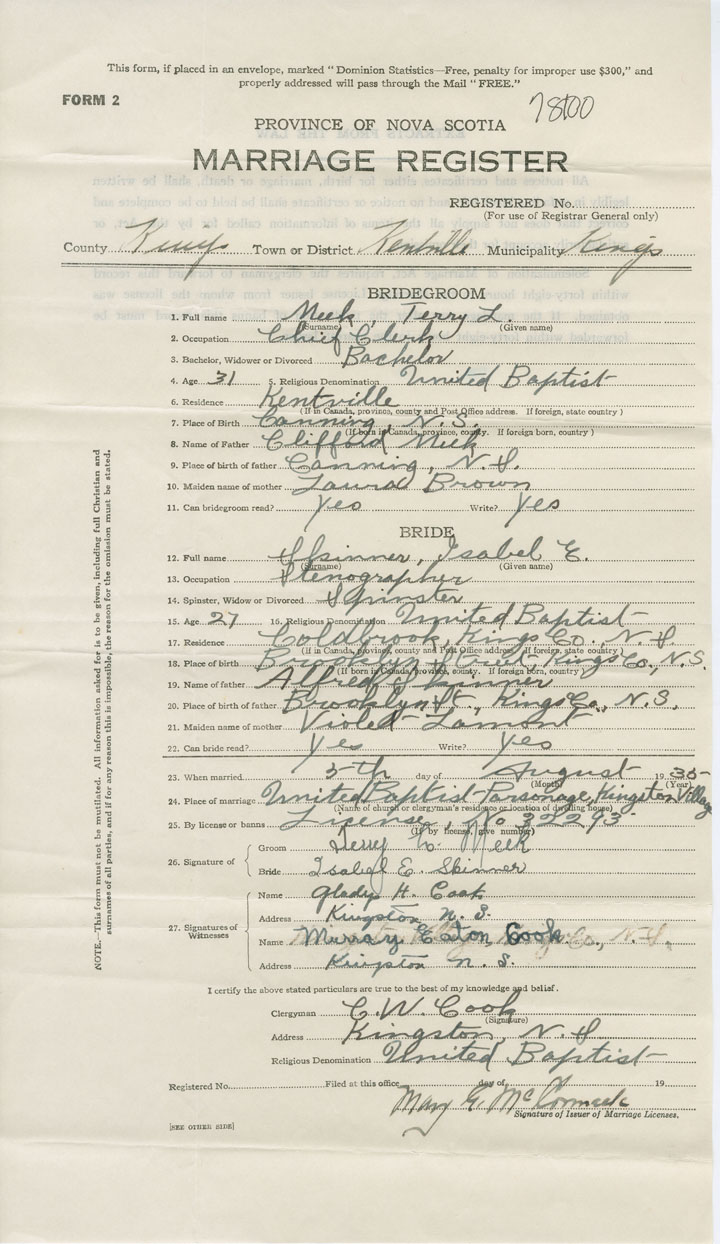 This form, if placed in an envelope, marked "Dominion Statistics—Free, penalty for improper use $300," and
properly addressed will pass through the Mail "FREE."
FORM 2
PROVINCE OF NOVA SCOTIA
MARRIAGE REGISTER
REGISTERED No.
(For use of Registrar General only)
County Kings Town or District Kentville Municipality Kings
BRIDEGROOM
1. Full name Meek, Terry L.
(Surname) (Given name)
2. Occupation Chief Clerk
3. Bachelor, Widower or Divorced Bachelor
4. Age 31 5. Religious Denomination United Baptist
6. Residence Kentville
(If in Canada, province, county and Post Office address. If foreign, state country)
7. Place of Birth Canning, N.S.
(If born in Canada, province, county. If foreign born, country)
8. Name of Father Clifford Meek
9. Place of birth of father Canning, N.S.
10. Maiden name of mother Laura Brown
11. Can bridegroom read? Yes Write? Yes
BRIDE
12. Full name Skinner, Isabel E.
(Surname) (Given name)
13. Occupation Stenographer
14. Spinster, Widow or Divorced Spinster
15. Age 27 16. Religious Denomination United Baptist
17. Residence Coldbrook, Kings Co., N.S.
(If in Canada, province, county and Post Office address. If foreign, state country)
18. Place of birth Brooklyn Street, Kings Co., N.S.
(If born in Canada, province, county. If foreign born, country)
19. Name of father Alfred Skinner
20. Place of birth of father Brooklyn St., Kings Co., N.S.
21. Maiden name of mother Violet Lamont
22. Can bride read? Yes Write? Yes
23. When married 5th day of August 1935
(Month) (Year)
24. Place of marriage United Baptist Parsonage, Kingston Village
(Name of church or clergyman's residence or location of dwelling house)
25. By license or banns License, No 32293
(If by license, give number)
26. Signature of
Groom Terry L. Meek
Bride Isabel E. Skinner
27. Signatures of Witnesses
Name Gladys H. Cook
Address Kingston N.S.
Name Murray Eaton Cook Co., N.S.
Address Kingston N.S.
I certify the above stated particulars are true to the best of my knowledge and belief.
Clergyman C.W. Cook
(Signature)
Address Kingston, N.S
Religious Denomination United Baptist
Registered No. Filed at this office day of 19
Mary G. McCormack
Signature of Issuer of Marriage Licenses.
[SEE OTHER SIDE]
NOTE.—This form must not be mutilated. All information asked for is to be given, including full Christian and
surnames of all parties, and if for any reason this is impossible, the reason for the omission must be stated.